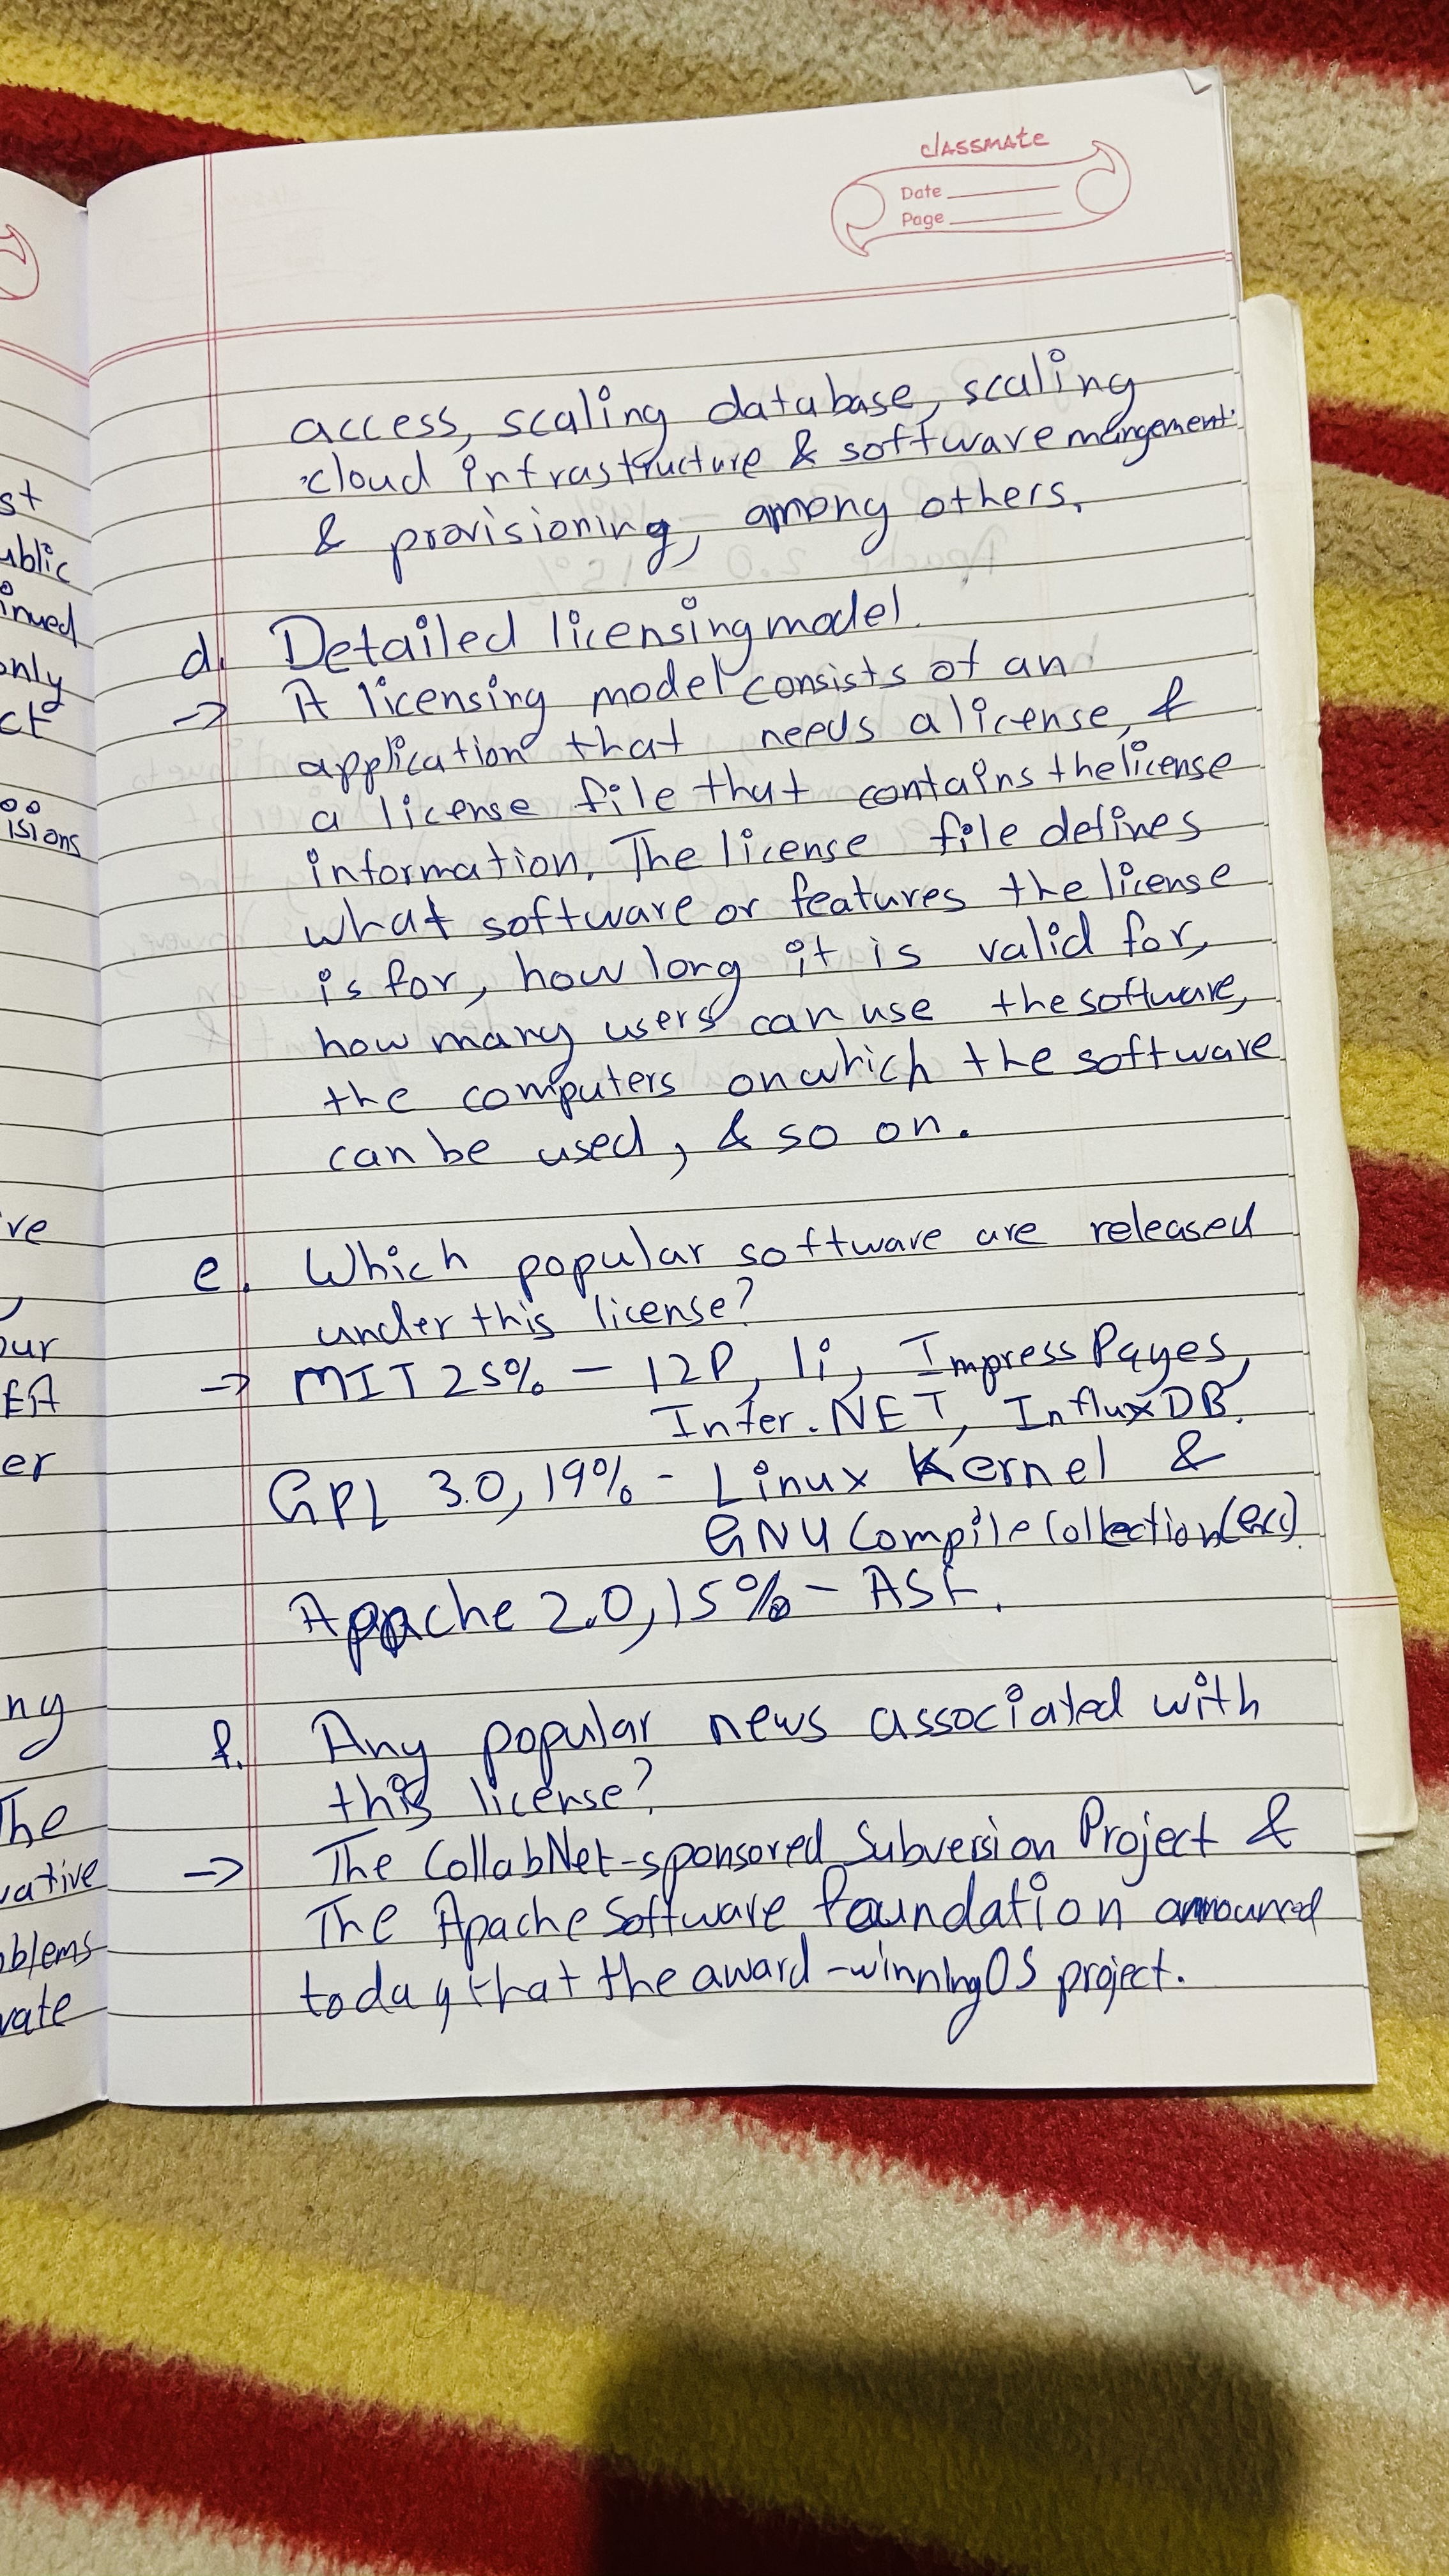 classmate
Date
Page
access, scaling database, scaling
cloud infrastructure & software mangement
& provisioning, among others.
d. Detailed licensing model.
→ A licensing model consists of an
application that needs a license, &
a license file that contains the license
information. The license file defines
what software or features the license
is for, how long it is valid for,
how many users can use the software,
the computers on which the software
can be used, & so on.
e. Which popular software are released
under this license?
→ MIT 25% - I2P, li, Impress Pages,
Inter.NET, InfluxDB.
GPL 3.0, 19% - Linux Kernel &
GNU Compile Collection
Apache 2.0, 15% - ASF.
f. Any popular news associated with
this license?
→ The CollabNet-sponsored Subversion Project &
The Apache Software foundation
today that the award-winning OS project.
st
ublic
inued
only
isions
ve
our
EA
er
ny
The
vative
oblems
vate